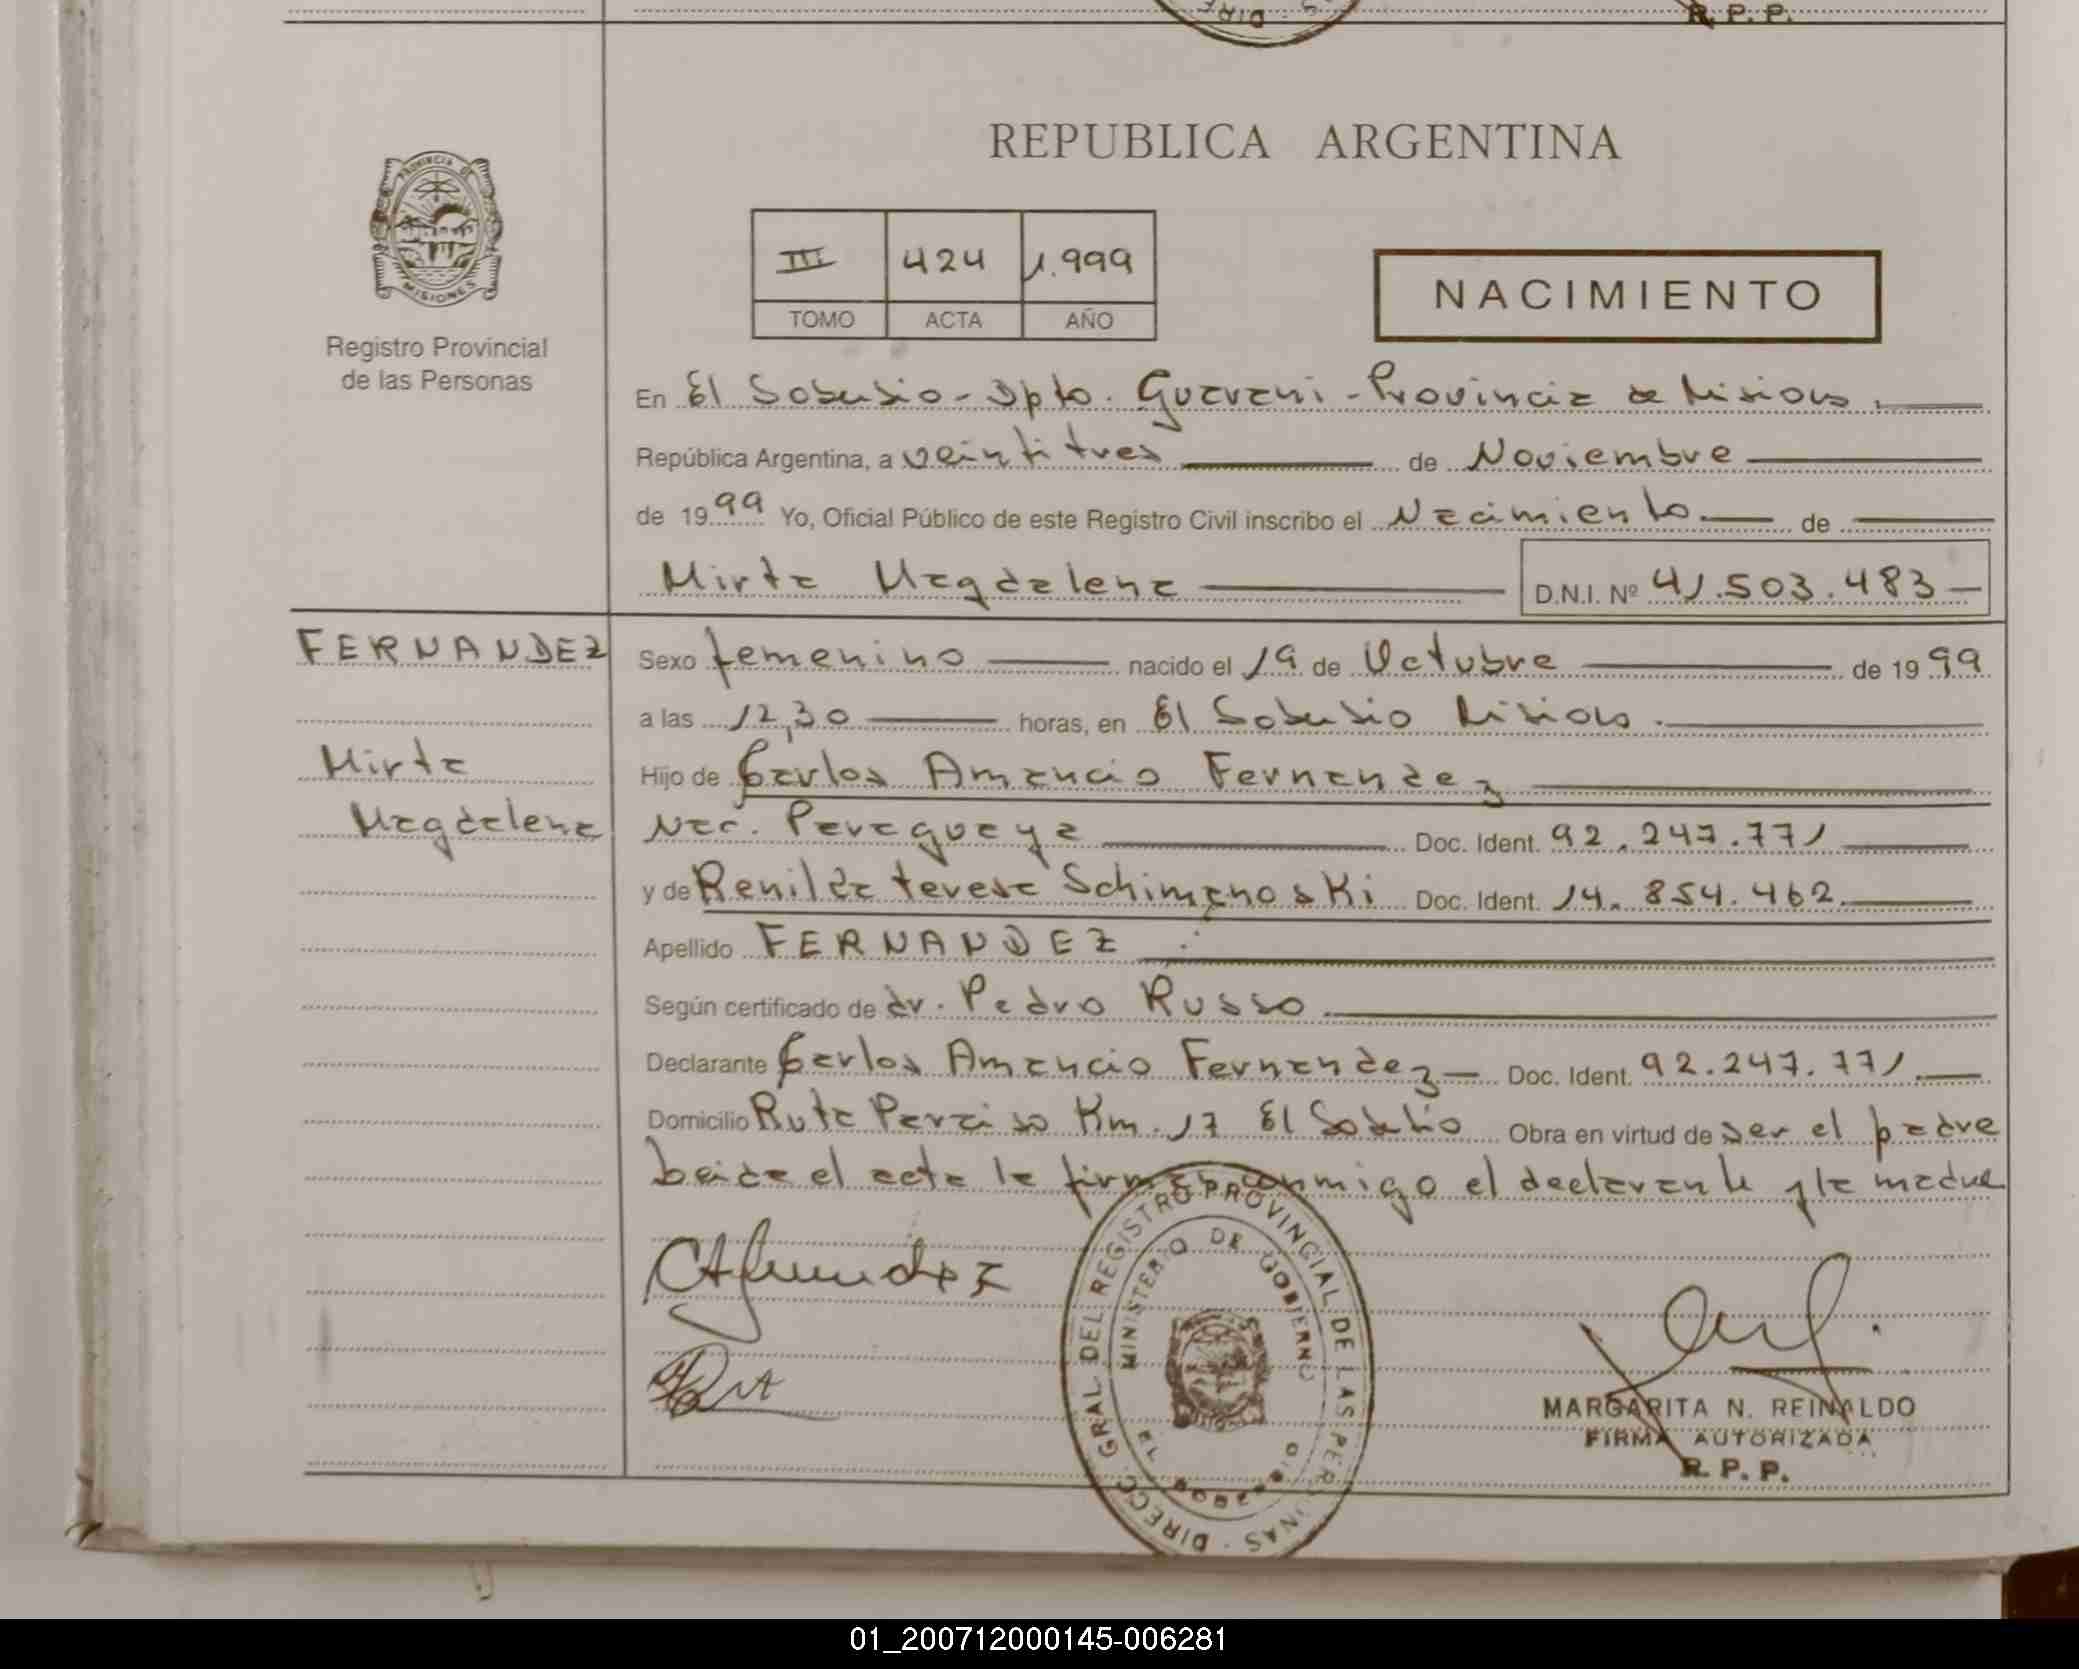 R. P. P.
REPUBLICA ARGENTINA
PROVINCIA DE
MISIONES
Registro Provincial
de las Personas
III 424 1.999
TOMO ACTA AÑO
NACIMIENTO
En El Soberbio - Dpto. Guarani - Provincia de Misiones.
República Argentina, a veintitres de Noviembre
de 1999 Yo, Oficial Público de este Registro Civil inscribo el Nacimiento de
Mirta Magdalena D.N.I. Nº 41.503.483
FERNANDEZ
Mirta
Magdalena
Sexo femenino nacido el 19 de Octubre de 1999
a las 12,30 horas, en El Soberbio Misiones.
Hijo de Carlos Amancio Fernandez
Nac. Paraguaya Doc. Ident. 92.247.771
y de Renilda teresa Schimanoski Doc. Ident. 14.854.462
Apellido FERNANDEZ
Según certificado de dr. Pedro Russo
Declarante Carlos Amancio Fernandez Doc. Ident. 92.247.771
Domicilio Ruta Paraiso Km. 17 El Soberbio Obra en virtud de ser el padre
Leida el acta la firman conmigo el declarante y la madre
CAFernandez
DIRECC. GRAL. DEL REGISTRO PROVINCIAL DE LAS PERSONAS
MINISTERIO DE GOBIERNO
MARGARITA N. REINALDO
FIRMA AUTORIZADA
R. P. P.
01_200712000145-006281